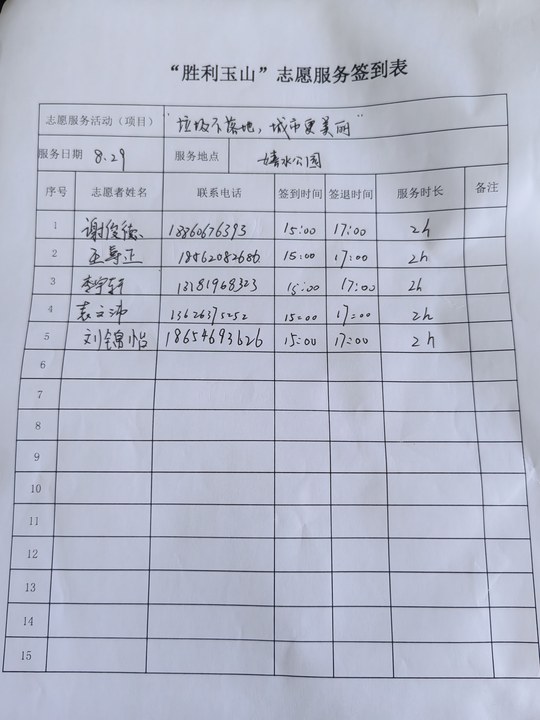 “胜利玉山”志愿服务签到表
志愿服务活动（项目） “垃圾不落地，城市更美丽”
服务日期 8.29 服务地点 公园
序号 志愿者姓名 联系电话 签到时间 签退时间 服务时长 备注
1 谢俊德 18860676393 15:00 17:00 2h
2 18562082686 15:00 17:00 2h
3 李宇轩 13181968323 15:00 17:00 2h
4 袁文沛 13626375252 15:00 17:00 2h
5 刘锦怡 18654693626 15:00 17:00 2h
6
7
8
9
10
11
12
13
14
15